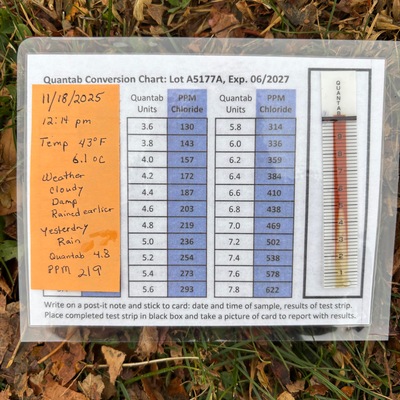 Quantab Conversion Chart: Lot A5177A, Exp. 06/2027
11/18/2025
12:14 pm
Temp 43°F
6.1 °C
Weather
Cloudy
Damp
Rained earlier
Yesterday
Rain
Quantab 4.8
PPM 219
Quantab Units PPM Chloride Quantab Units PPM Chloride
3.6 130 5.8 314
3.8 143 6.0 336
4.0 157 6.2 359
4.2 172 6.4 384
4.4 187 6.6 410
4.6 203 6.8 438
4.8 219 7.0 469
5.0 236 7.2 502
5.2 254 7.4 538
5.4 273 7.6 578
5.6 293 7.8 622
QUANTAB
Write on a post-it note and stick to card: date and time of sample, results of test strip.
Place completed test strip in black box and take a picture of card to report with results.